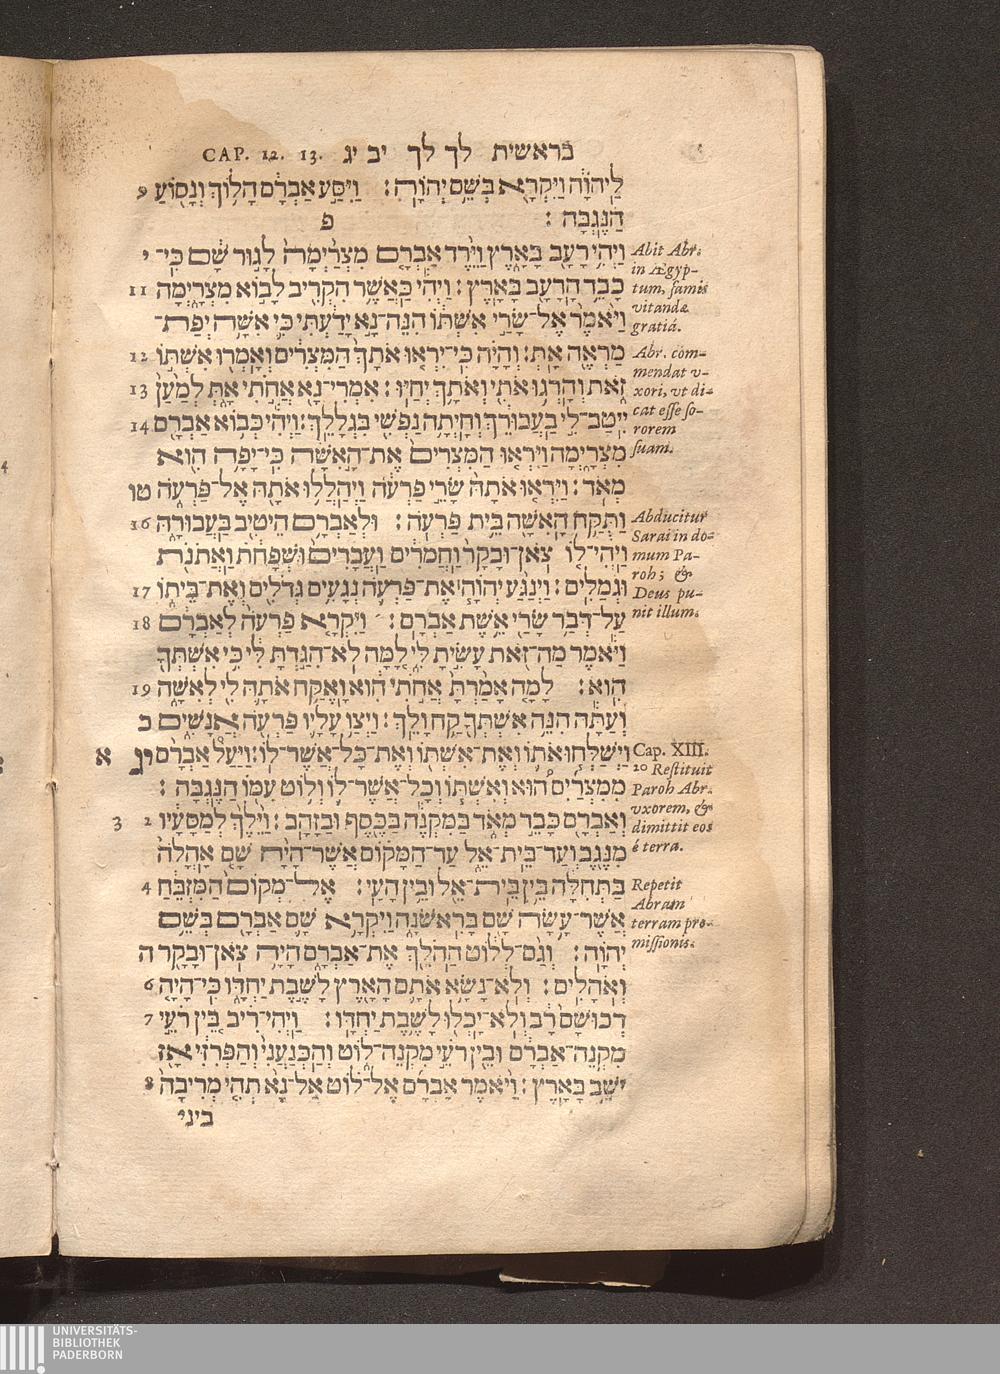 בראשית לך לך יב יג CAP. 12. 13.
לַיהוָֹה וַיִּקְרָא בְּשֵׁם יְהוָֹה׃ וַיִּסַּע אַבְרָם הָלוֹךְ וְנָסוֹעַ 9
הַנֶּגְבָּה׃ פ
וַיְהִי רָעָב בָּאָרֶץ וַיֵּרֶד אַבְרָם מִצְרַיְמָה לָגוּר שָׁם כִּי־ י
כָבֵד הָרָעָב בָּאָרֶץ׃ וַיְהִי כַּאֲשֶׁר הִקְרִיב לָבוֹא מִצְרָיְמָה 11
וַיֹּאמֶר אֶל־שָׂרַי אִשְׁתּוֹ הִנֵּה־נָא יָדַעְתִּי כִּי אִשָּׁה יְפַת־
מַרְאֶה אָתְּ׃ וְהָיָה כִּי־יִרְאוּ אֹתָךְ הַמִּצְרִים וְאָמְרוּ אִשְׁתּוֹ 12
זֹאת וְהָרְגוּ אֹתִי וְאֹתָךְ יְחַיּוּ׃ אִמְרִי־נָא אֲחֹתִי אָתְּ לְמַעַן 13
יִיטַב־לִי בַעֲבוּרֵךְ וְחָיְתָה נַפְשִׁי בִּגְלָלֵךְ׃ וַיְהִי כְּבוֹא אַבְרָם 14
מִצְרָיְמָה וַיִּרְאוּ הַמִּצְרִים אֶת־הָאִשָּׁה כִּי־יָפָה הִוא
מְאֹד׃ וַיִּרְאוּ אֹתָהּ שָׂרֵי פַרְעֹה וַיְהַלְלוּ אֹתָהּ אֶל־פַּרְעֹה טו
וַתֻּקַּח הָאִשָּׁה בֵּית פַּרְעֹה׃ וּלְאַבְרָם הֵיטִיב בַּעֲבוּרָהּ 16
וַיְהִי־לוֹ צֹאן־וּבָקָר וַחֲמֹרִים וַעֲבָדִים וּשְׁפָחֹת וַאֲתֹנֹת
וּגְמַלִּים׃ וַיְנַגַּע יְהוָֹה אֶת־פַּרְעֹה נְגָעִים גְּדֹלִים וְאֶת־בֵּיתוֹ 17
עַל־דְּבַר שָׂרַי אֵשֶׁת אַבְרָם׃ וַיִּקְרָא פַרְעֹה לְאַבְרָם 18
וַיֹּאמֶר מַה־זֹּאת עָשִׂיתָ לִּי לָמָּה לֹא־הִגַּדְתָּ לִּי כִּי אִשְׁתְּךָ
הִוא׃ לָמָה אָמַרְתָּ אֲחֹתִי הִוא וָאֶקַּח אֹתָהּ לִי לְאִשָּׁה 19
וְעַתָּה הִנֵּה אִשְׁתְּךָ קַח וָלֵךְ׃ וַיְצַו עָלָיו פַּרְעֹה אֲנָשִׁים כ
וַיְשַׁלְּחוּ אֹתוֹ וְאֶת־אִשְׁתּוֹ וְאֶת־כָּל־אֲשֶׁר־לוֹ׃ וַיַּעַל אַבְרָם יג א
מִמִּצְרַיִם הוּא וְאִשְׁתּוֹ וְכָל־אֲשֶׁר־לוֹ וְלוֹט עִמּוֹ הַנֶּגְבָּה׃
וְאַבְרָם כָּבֵד מְאֹד בַּמִּקְנֶה בַּכֶּסֶף וּבַזָּהָב׃ וַיֵּלֶךְ לְמַסָּעָיו 2 3
מִנֶּגֶב וְעַד־בֵּית־אֵל עַד־הַמָּקוֹם אֲשֶׁר־הָיָה שָׁם אָהֳלֹה
בַּתְּחִלָּה בֵּין בֵּית־אֵל וּבֵין הָעָי׃ אֶל־מְקוֹם הַמִּזְבֵּחַ 4
אֲשֶׁר־עָשָׂה שָׁם בָּרִאשֹׁנָה וַיִּקְרָא שָׁם אַבְרָם בְּשֵׁם
יְהוָֹה׃ וְגַם־לְלוֹט הַהֹלֵךְ אֶת־אַבְרָם הָיָה צֹאן־וּבָקָר ה
וְאֹהָלִים׃ וְלֹא־נָשָׂא אֹתָם הָאָרֶץ לָשֶׁבֶת יַחְדָּו כִּי־הָיָה 6
רְכוּשָׁם רָב וְלֹא־יָכְלוּ לָשֶׁבֶת יַחְדָּו׃ וַיְהִי־רִיב בֵּין רֹעֵי 7
מִקְנֵה־אַבְרָם וּבֵין רֹעֵי מִקְנֵה־לוֹט וְהַכְּנַעֲנִי וְהַפְּרִזִּי אָז
יֹשֵׁב בָּאָרֶץ׃ וַיֹּאמֶר אַבְרָם אֶל־לוֹט אַל־נָא תְהִי מְרִיבָה 8
ביני
Abit Abr.
in Ægyp-
tum, famis
vitandæ
gratiâ.
Abr. com-
mendat v-
xori, vt di-
cat esse so-
rorem
suam.
Abducitur
Sarai in do-
mum Pa-
roh; &
Deus pu-
nit illum.
Cap. XIII.
20 Restituit
Paroh Abr.
vxorem, &
dimittit eos
é terra.
Repetit
Abram
terram pro-
missionis.
UNIVERSITÄTS-
BIBLIOTHEK
PADERBORN